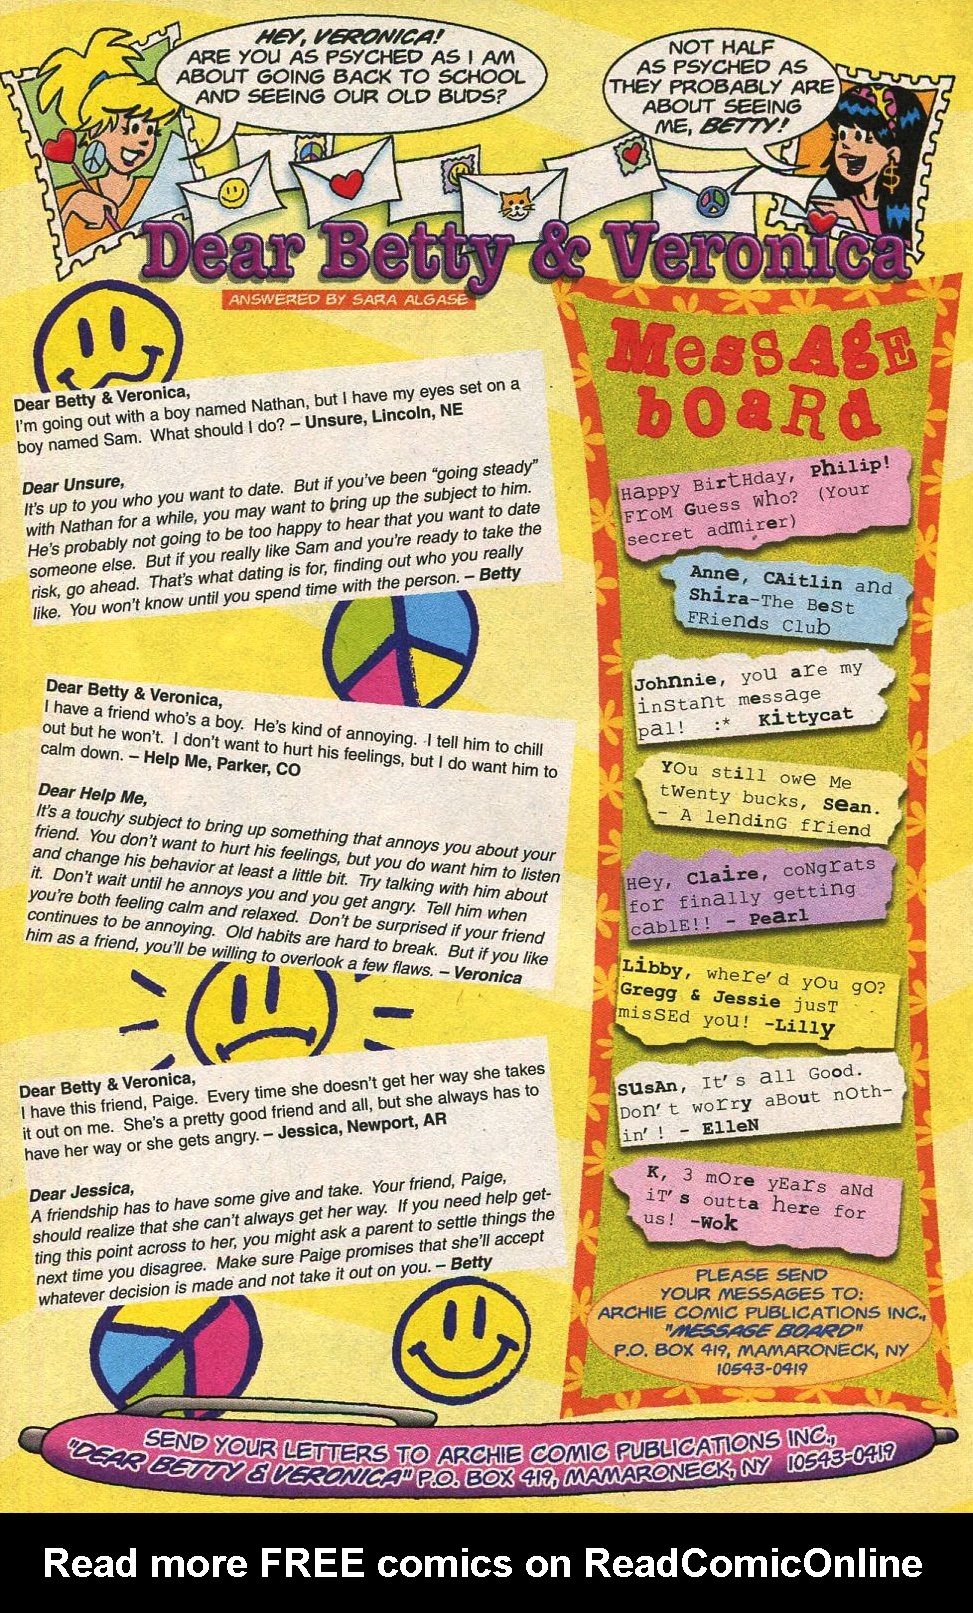 HEY, VERONICA!
ARE YOU AS PSYCHED AS I AM
ABOUT GOING BACK TO SCHOOL
AND SEEING OUR OLD BUDS?
NOT HALF
AS PSYCHED AS
THEY PROBABLY ARE
ABOUT SEEING
ME, BETTY!
Dear Betty & Veronica
ANSWERED BY SARA ALGASE
Dear Betty & Veronica,
I'm going out with a boy named Nathan, but I have my eyes set on a
boy named Sam. What should I do? – Unsure, Lincoln, NE
Dear Unsure,
It's up to you who you want to date. But if you've been "going steady"
with Nathan for a while, you may want to bring up the subject to him.
He's probably not going to be too happy to hear that you want to date
someone else. But if you really like Sam and you're ready to take the
risk, go ahead. That's what dating is for, finding out who you really
like. You won't know until you spend time with the person. – Betty
Dear Betty & Veronica,
I have a friend who's a boy. He's kind of annoying. I tell him to chill
out but he won't. I don't want to hurt his feelings, but I do want him to
calm down. – Help Me, Parker, CO
Dear Help Me,
It's a touchy subject to bring up something that annoys you about your
friend. You don't want to hurt his feelings, but you do want him to listen
and change his behavior at least a little bit. Try talking with him about
it. Don't wait until he annoys you and you get angry. Tell him when
you're both feeling calm and relaxed. Don't be surprised if your friend
continues to be annoying. Old habits are hard to break. But if you like
him as a friend, you'll be willing to overlook a few flaws. – Veronica
Dear Betty & Veronica,
I have this friend, Paige. Every time she doesn't get her way she takes
it out on me. She's a pretty good friend and all, but she always has to
have her way or she gets angry. – Jessica, Newport, AR
Dear Jessica,
A friendship has to have some give and take. Your friend, Paige,
should realize that she can't always get her way. If you need help get-
ting this point across to her, you might ask a parent to settle things the
next time you disagree. Make sure Paige promises that she'll accept
whatever decision is made and not take it out on you. – Betty
MessAgE
boaRd
Happy BirtHday, Philip!
FroM Guess Who? (Your
secret admirer)
Anne, CAitlin and
Shira-The BeSt
FRiends Club
Johnnie, you are my
inStant message
pal! :* Kittycat
YOu still owe Me
tWenty bucks, Sean.
- A lenDinG friend
Hey, Claire, coNgrats
for finally getting
cablE!! - Pearl
Libby, where'd yOu gO?
Gregg & Jessie jusT
misSEd you! -Lilly
SUsAn, It's all Good.
Don't worry aBout nOth-
in'! - ElleN
K, 3 mOre yEars aNd
iT's outta here for
us! -Wok
PLEASE SEND
YOUR MESSAGES TO:
ARCHIE COMIC PUBLICATIONS INC.,
"MESSAGE BOARD"
P.O. BOX 419, MAMARONECK, NY
10543-0419
SEND YOUR LETTERS TO ARCHIE COMIC PUBLICATIONS INC.,
"DEAR BETTY & VERONICA" P.O. BOX 419, MAMARONECK, NY 10543-0419
Read more FREE comics on ReadComicOnline